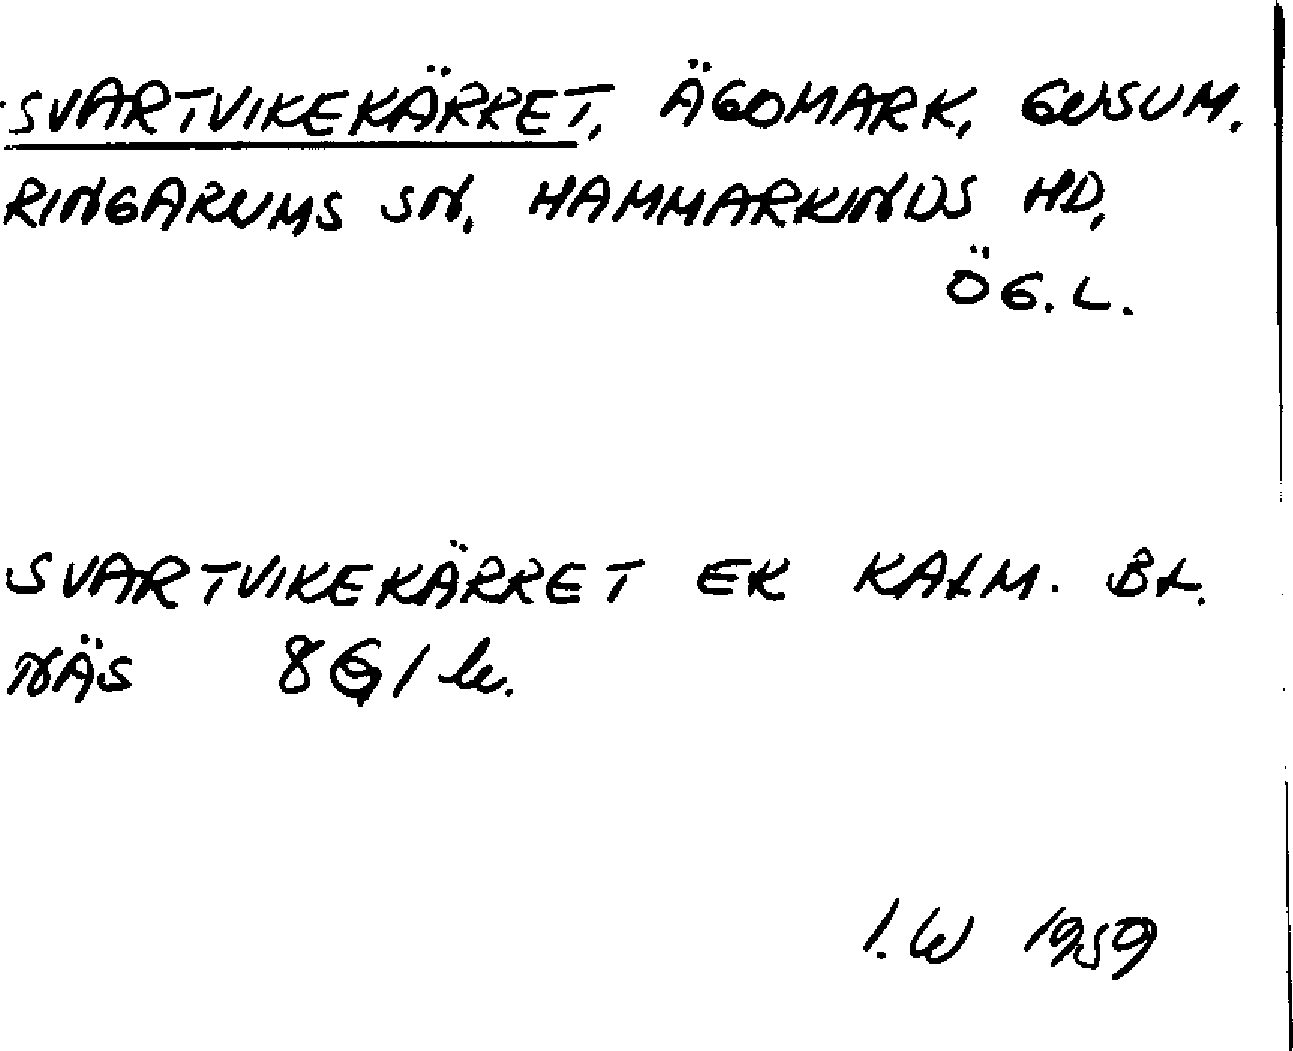 SVARTVIKEKÄRRET, ÄGOMARK, GUSUM.
RINGARUMS SN, HAMMARKINDS HD,
ÖG. L.
SVARTVIKEKÄRRET EK KALM. BL.
NÄS 8G1
I. W 1959